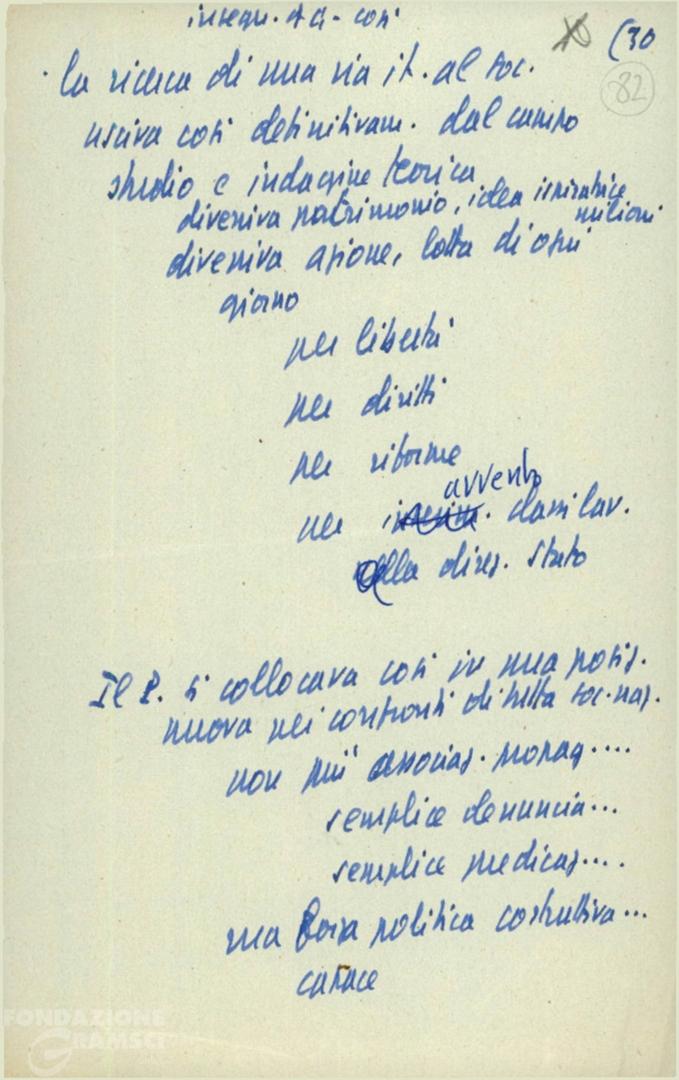 insegn. di G. - così
(30
82
la ricerca di una via it. al soc.
usciva così definitivam. dal campo
studio e indagine teorica
diveniva patrimonio, idea ispiratrice
milioni
diveniva azione, lotta di ogni
giorno
per libertà
per diritti
per riforme
avvento
per classi lav.
alla direz. Stato
Il P. si collocava così in una posiz.
nuova nei confronti di tutta soc. naz.
non più associaz. propag....
semplice denuncia...
semplice predicaz....
ma forza politica costruttiva...
capace
FONDAZIONE
GRAMSCI